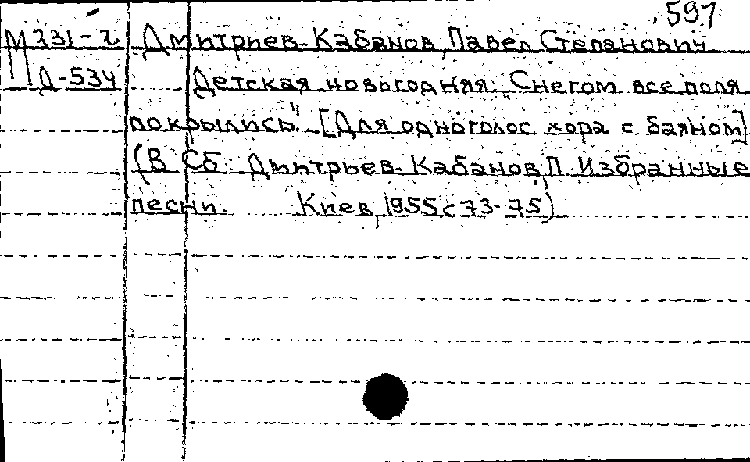 597
М 331-2 Дмитриев-Кабанов, Павел Степанович
Д-534 Детская новогодняя. "Снегом все поля
покрылись". [Для одноголос хора с баяном]
(В сб: Дмитриев-Кабанов, П. Избранные
песни. Киев, 1955 с 73-75)